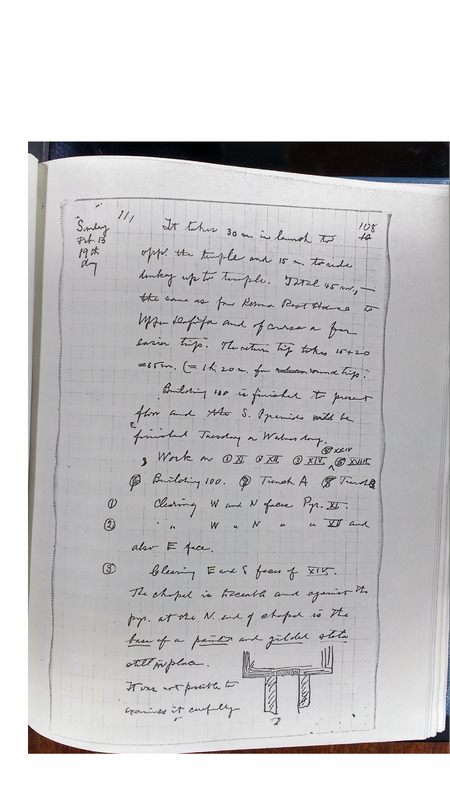 Sunday
Feb 13
19th
day
111
108
It takes 30 m in launch to
opp. the temple and 15 m. to ride
donkey up to temple. Total 45 m, —
the same as from Kerma Rest House to
Upper Defufa and of course a far
easier trip. The return trip takes 15+20
=35 m. (= 1 h. 20 m. for round trip.
Building 100 is finished to present
floor and the S. Pyramids will be
finished Tuesday or Wednesday.
Work on ① XI ② XII ③ XIV ④ XXIV ⑤ XVIII
⑥ Building 100. ⑦ Trench A ⑧ Trench B
① Clearing W and N faces Pyr. XI.
② " " W " N " " and
also E face.
③ Clearing E and S faces of XIV.
The chapel is traceable and against the
pyr. at the N. end of chapel is the
base of a painted and gilded stela
still in place.
It was not possible to
examine it carefully